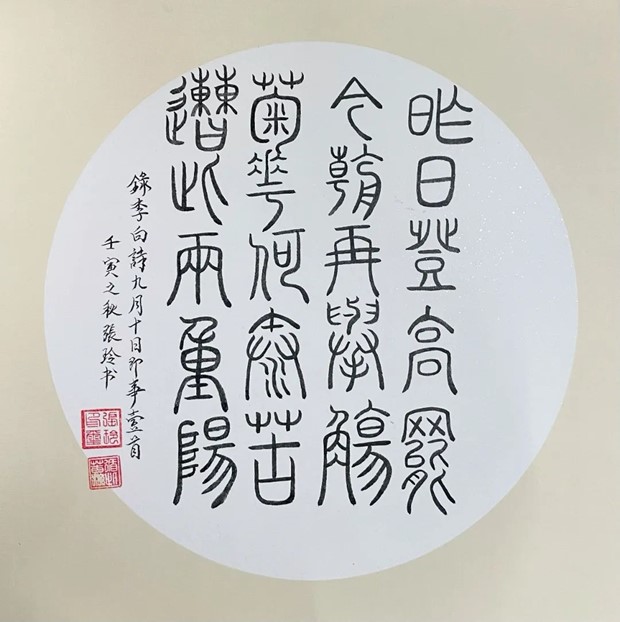 昨日登高罷
今朝再舉觴
菊華何泰苦
遭此兩重陽
錄李白詩九月十日即事壹首
壬寅之秋張玲书